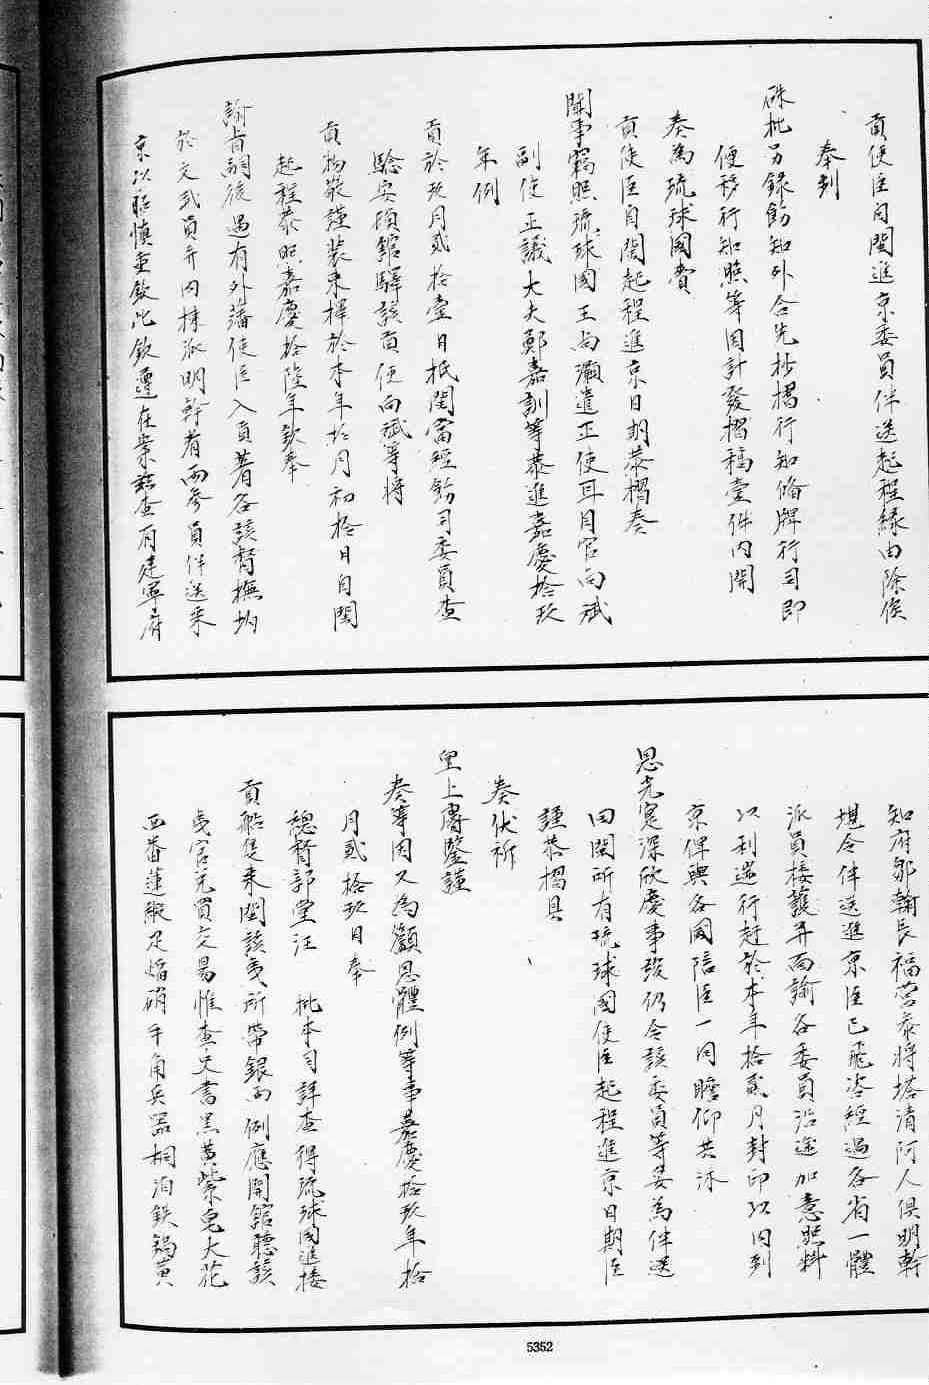 貢使臣自閩進京委員伴送起程緣由除俟
奉到
硃批另錄飭知外合先抄摺行知脩牌行司即
便移行知照等因計發摺稿壹件內開
奏為琉球國貢
貢使臣自閩起程進京日期恭摺奏
聞事竊照琉球國王尚灝遣正使耳目官向斌
副使正議大夫鄭嘉訓等恭進嘉慶拾玖
年例
貢於玖月貳拾壹日抵閩當經飭司委員查
驗安頓館驛該貢使向斌等將
貢物敬謹裝束擇於本年拾月初拾日自閩
起程恭照嘉慶拾陸年欽奉
諭旨嗣後遇有外藩使臣入貢著各該督撫均
於文武員弁內揀派明幹者兩參員伴送來
京以昭慎重欽此欽遵在案茲查有建寧府
知府鄒翰長福營參將塔清阿人俱明幹
堪令伴送進京臣已飛咨經過各省一體
派員接護并面諭各委員沿途加意照料
以利遄行趕於本年拾貳月封印以內到
京俾與各國陪臣一同瞻仰共沐
恩光寔深欣慶事竣仍令該委員等妥為伴送
回閩所有琉球國使臣起程進京日期臣
謹恭摺具
奏伏祈
皇上睿鑒謹
奏等因又為籲恩體例等事嘉慶拾玖年拾
月貳拾玖日奉
總督部堂汪 批本司詳查得琉球國進接
貢船隻來閩該夷所帶銀兩例應開館聽該
夷官兌買交易惟查史書黑黃紫皂大花
西番蓮緞疋焰硝牛角兵器桐油鐵鍋黃
5352